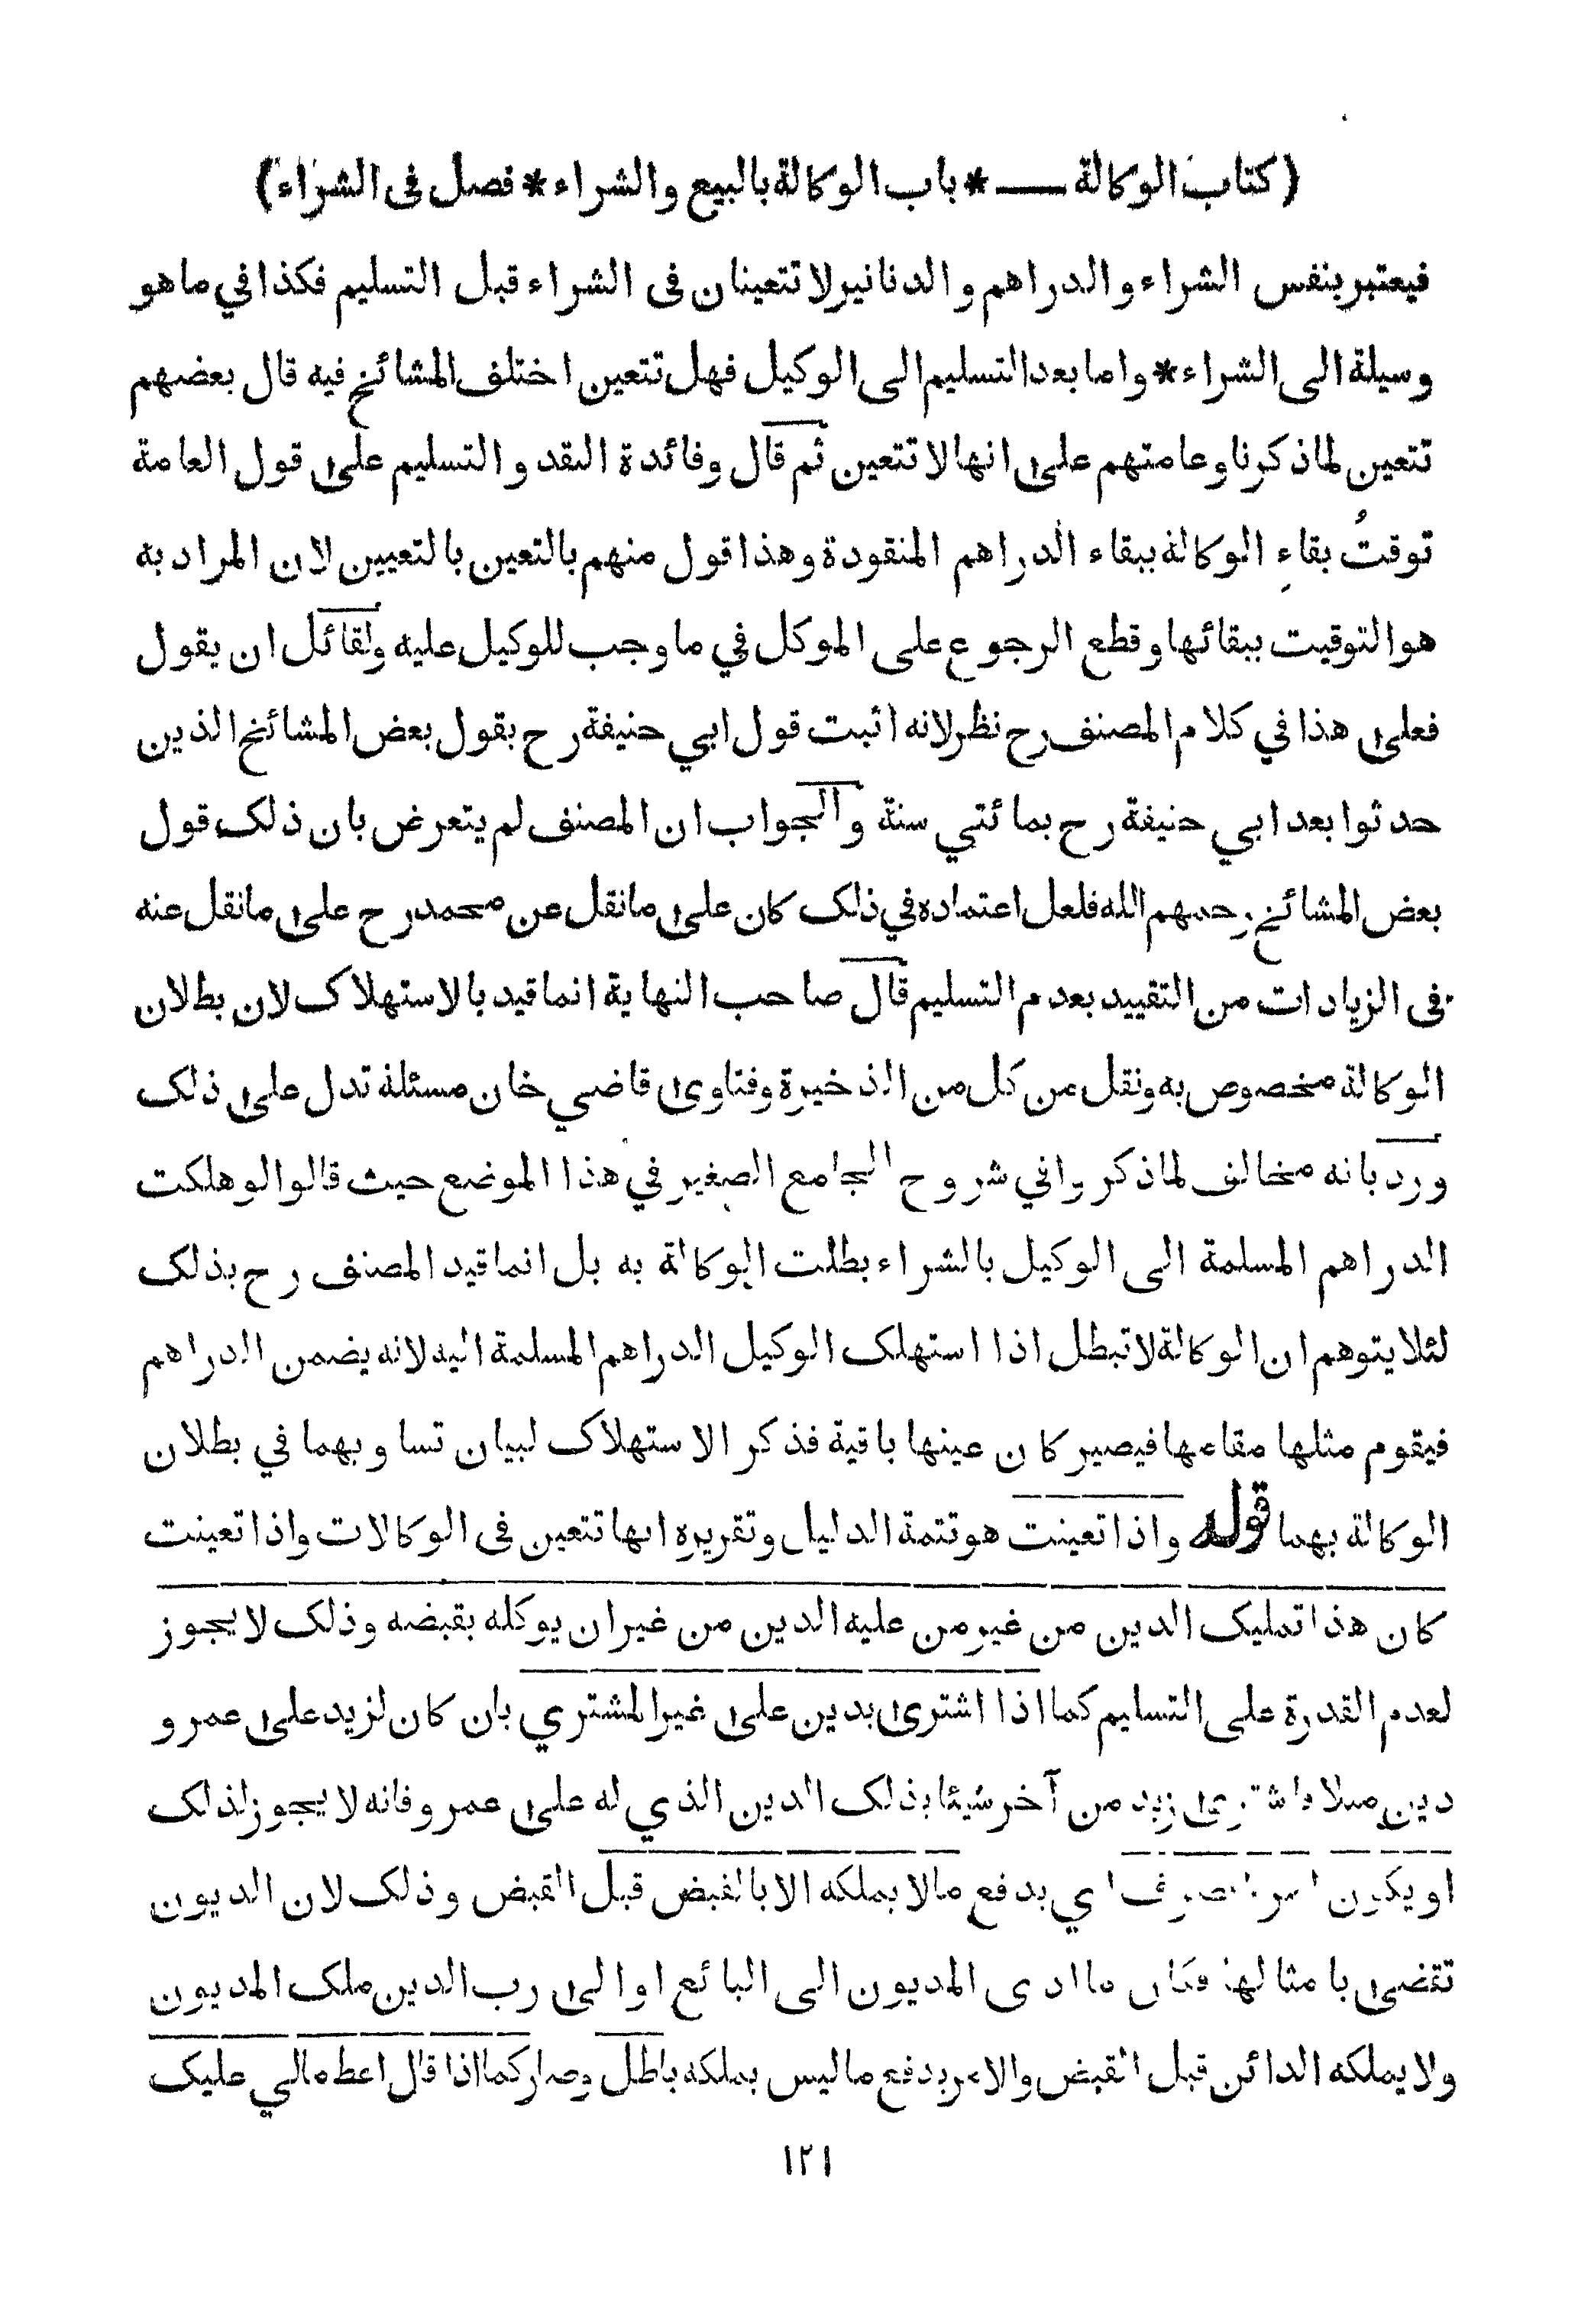 ( كتاب الوكالة ــــ * باب الوكالة بالبيع والشراء * فصل فى الشراء )
فيعتبر بنفس الشراء والدراهم والدنانير لا تتعينان فى الشراء قبل التسليم فكذا في ما هو
وسيلة الى الشراء * واما بعد التسليم الى الوكيل فهل تتعين اختلف المشائخ فيه قال بعضهم
تتعين لما ذكرنا وعامتهم على انها لا تتعين ثم قال وفائدة النقد والتسليم على قول العامة
توقتُ بقاءِ الوكالة ببقاء الدراهم المنقودة وهذا قول منهم بالتعين بالتعيين لان المراد به
هو التوقيت ببقائها وقطع الرجوع على الموكل في ما وجب للوكيل عليه ولقائل ان يقول
فعلى هذا في كلام المصنف رح نظر لانه اثبت قول ابي حنيفة رح بقول بعض المشائخ الذين
حدثوا بعد ابي حنيفة رح بمائتي سنة والجواب ان المصنف لم يتعرض بان ذلك قول
بعض المشائخ رحمهم الله فلعل اعتماده في ذلك كان على ما نقل عن محمد رح على ما نقل عنه
فى الزيادات من التقييد بعدم التسليم قال صاحب النهاية انما قيد بالاستهلاك لان بطلان
الوكالة مخصوص به ونقل عن كل من الذخيرة وفتاوى قاضي خان مسئلة تدل على ذلك
ورد بانه مخالف لما ذكروا في شروح الجامع الصغير في هذا الموضع حيث قالوا لو هلكت
الدراهم المسلمة الى الوكيل بالشراء بطلت الوكالة به بل انما قيد المصنف رح بذلك
لئلا يتوهم ان الوكالة لا تبطل اذا استهلك الوكيل الدراهم المسلمة اليه لانه يضمن الدراهم
فيقوم مثلها مقامها فيصير كان عينها باقية فذكر الاستهلاك لبيان تساويهما في بطلان
الوكالة بهما قوله واذا تعينت هو تتمة الدليل وتقريره انها تتعين فى الوكالات واذا تعينت
كان هذا تمليك الدين من غير من عليه الدين من غير ان يوكله بقبضه وذلك لا يجوز
لعدم القدرة على التسليم كما اذا اشترى بدين على غير المشتري بان كان لزيد على عمرو
دين مثلا فاشترى زيد من آخر شيئا بذلك الدين الذي له على عمرو فانه لا يجوز لذلك
او يكون بصرف اي بدفع مالا يملكه الا بالقبض قبل القبض وذلك لان الديون
تقضى بامثالها فكان ما ادى المديون الى البائع او الى رب الدين ملك المديون
ولا يملكه الدائن قبل القبض والامر بدفع ما ليس بملكه باطل وصار كما اذا قال اعط مالي عليك
١٢١